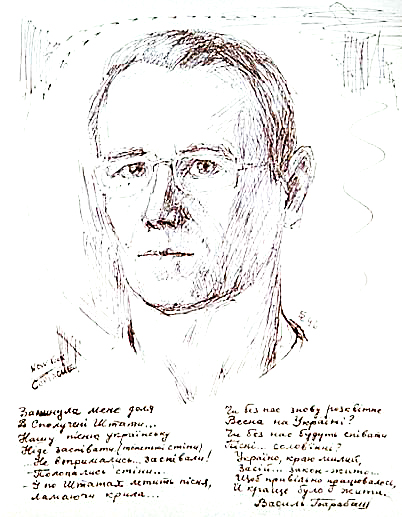 Закинула мене доля
В Сполучені Штати...
Нашу пісню українську
Ніде заспівати (тонентні стіни)
...Не втримались... заспівали!
...Полопались стіни...
- І по Штатах летить пісня,
Ламаючи крила...
Чи без нас знову розквітне
Весна на Україні?
Чи без нас будуть співати
Пісні... солов'їні?
Україно, краю милий,
Засій... закон-жито...
Щоб привільно працювалось,
И краще було б жити.
Василь Барабаш